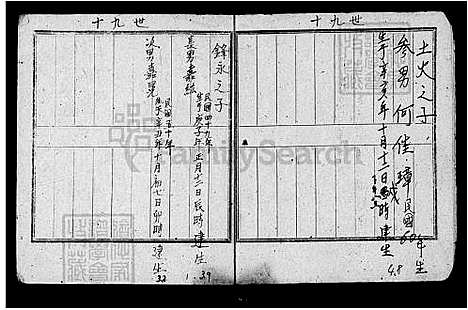 世九十
土火之子
参男 何佳璋 民國60年生
生于辛亥年十月十二日戌時建生
4.8
世九十
錦永之子
長男嘉紘
民國四十九年
生于庚子年正月十二日辰時建生
1.39
次男嘉晃
民國五十年
生于辛丑年十月初七日卯時建生
33
FamilySearch